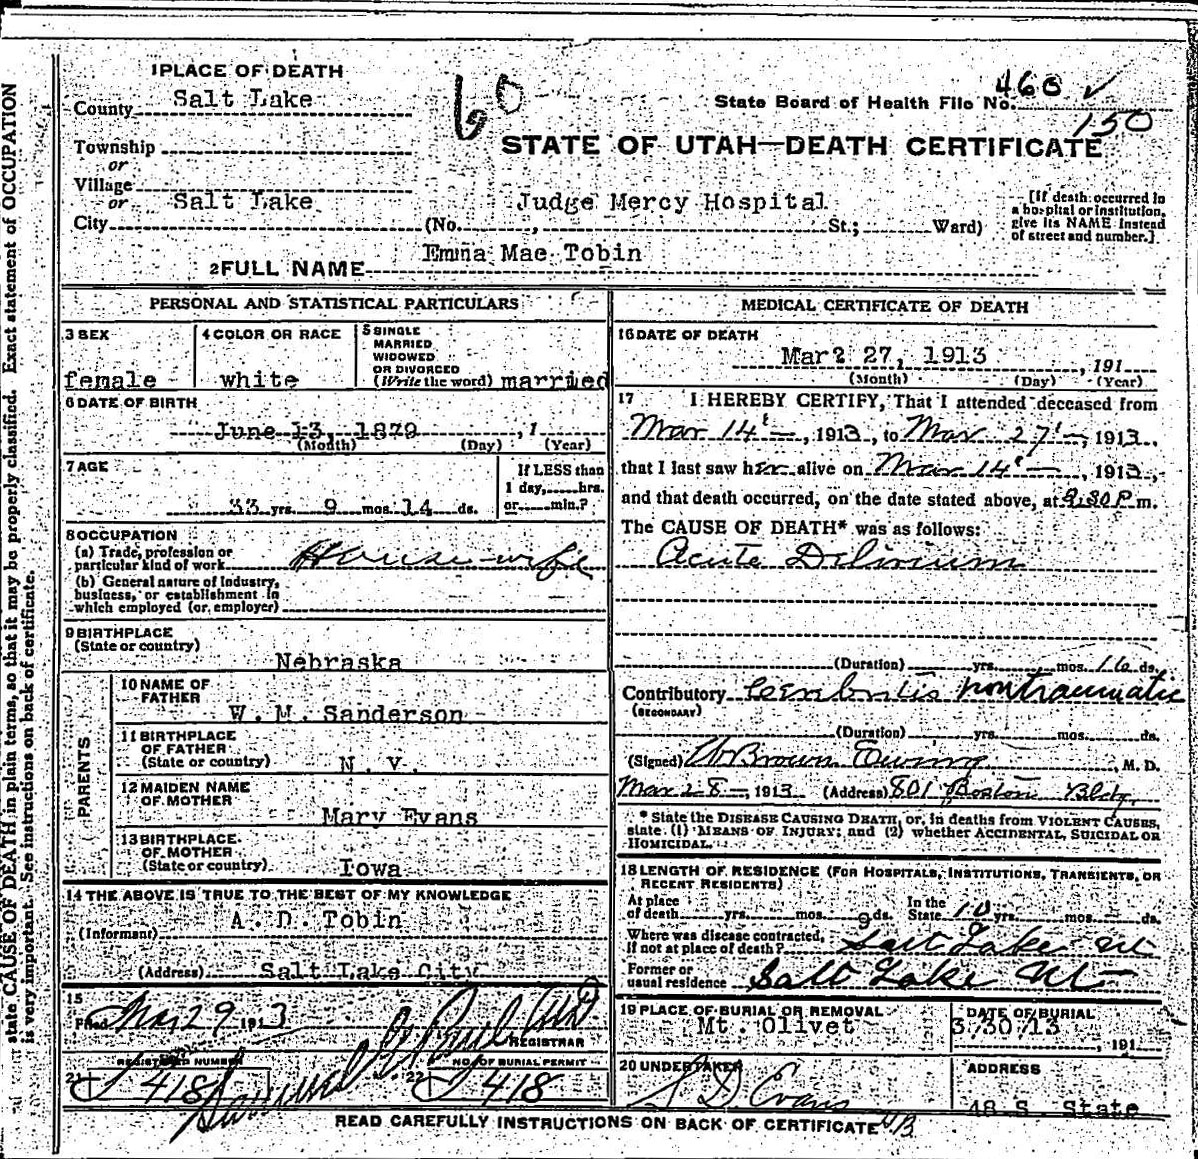 1 PLACE OF DEATH
County Salt Lake
Township
or
Village
or
City Salt Lake
60
State Board of Health File No. 460 ✓
150
STATE OF UTAH—DEATH CERTIFICATE
Judge Mercy Hospital
(No. , St.; Ward)
[If death occurred in
a hospital or institution,
give its NAME instead
of street and number.]
2 FULL NAME Emma Mae Tobin
PERSONAL AND STATISTICAL PARTICULARS
3 SEX
female
4 COLOR OR RACE
white
5 SINGLE
MARRIED
WIDOWED
OR DIVORCED
(Write the word) married
6 DATE OF BIRTH
June 13, 1879 , 1
(Month) (Day) (Year)
7 AGE
33 yrs. 9 mos. 14 ds.
If LESS than
1 day, hrs.
or min.?
8 OCCUPATION
(a) Trade, profession or
particular kind of work House-wife
(b) General nature of Industry,
business, or establishment in
which employed (or employer)
9 BIRTHPLACE
(State or country)
Nebraska
PARENTS
10 NAME OF
FATHER
W. M. Sanderson
11 BIRTHPLACE
OF FATHER
(State or country) N. Y.
12 MAIDEN NAME
OF MOTHER
Mary Evans
13 BIRTHPLACE
OF MOTHER
(State or country) Iowa
14 THE ABOVE IS TRUE TO THE BEST OF MY KNOWLEDGE
(Informant) A. D. Tobin
(Address) Salt Lake City
15
Filed Mar 29 1913
REGISTRAR
REGISTERED NUMBER
21 418
NO. OF BURIAL PERMIT
22 418
MEDICAL CERTIFICATE OF DEATH
16 DATE OF DEATH
Mar2 27, 1913 , 191
(Month) (Day) (Year)
17 I HEREBY CERTIFY, That I attended deceased from
Mar 14 , 1913, to Mar 27 , 1913,
that I last saw her alive on Mar 14 , 1913,
and that death occurred, on the date stated above, at 8:30 P m.
The CAUSE OF DEATH* was as follows:
Acute Delirium
(Duration) yrs. mos. 16 ds.
Contributory Cerebritis nontraumatic
(SECONDARY)
(Duration) yrs. mos. ds.
(Signed) Brown Ewing , M. D.
Mar 28 , 1913 (Address) 801 Boston Bldg.
* State the DISEASE CAUSING DEATH, or, in deaths from VIOLENT CAUSES,
state (1) MEANS OF INJURY; and (2) whether ACCIDENTAL, SUICIDAL OR
HOMICIDAL.
18 LENGTH OF RESIDENCE (FOR HOSPITALS, INSTITUTIONS, TRANSIENTS, OR
RECENT RESIDENTS)
At place
of death yrs. mos. 9 ds.
In the
State 10 yrs. mos. ds.
Where was disease contracted,
if not at place of death? Salt Lake Ut
Former or
usual residence Salt Lake Ut
19 PLACE OF BURIAL OR REMOVAL
Mt. Olivet
DATE OF BURIAL
3/30/13 , 191
20 UNDERTAKER
S D Evans
ADDRESS
48 S. State
READ CAREFULLY INSTRUCTIONS ON BACK OF CERTIFICATE
state CAUSE OF DEATH in plain terms, so that it may be properly classified. Exact statement of OCCUPATION
is very important. See instructions on back of certificate.